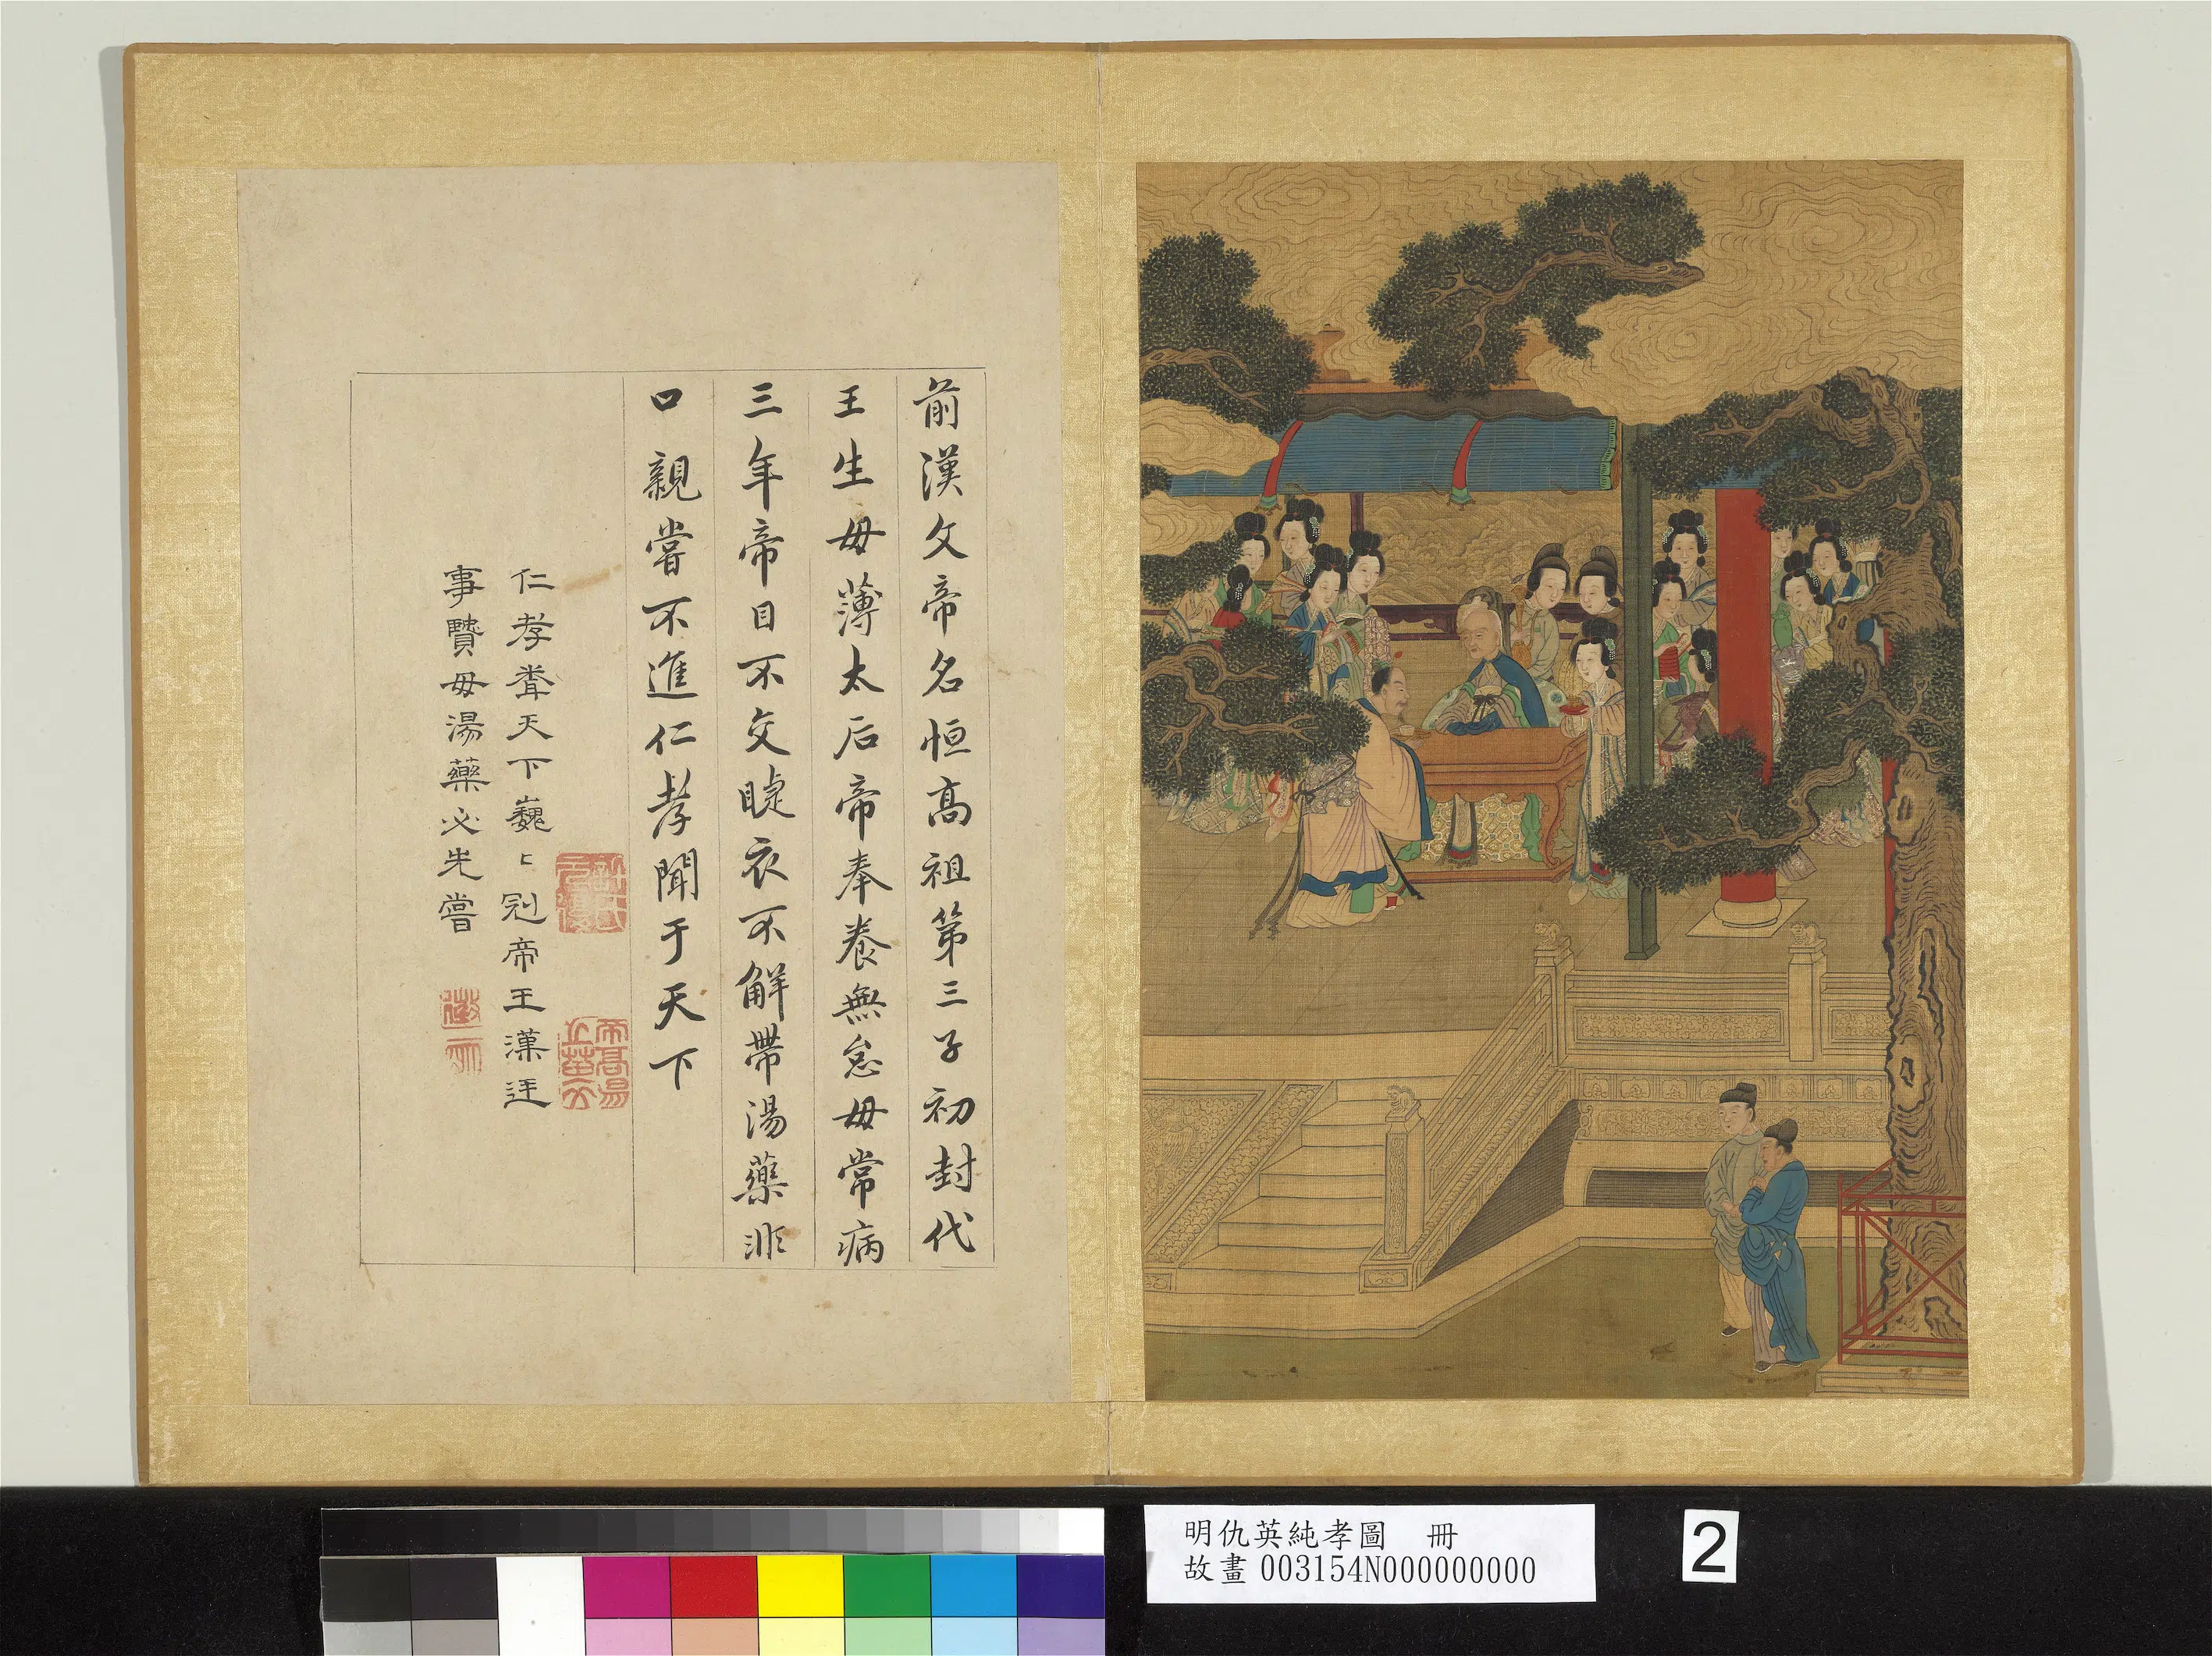 前漢文帝名恒高祖第三子初封代
王生母薄太后帝奉養無怠母常病
三年帝目不交睫衣不解帶湯藥非
口親嘗不進仁孝聞于天下
仁孝聞天下巍〻冠帝王漢廷
事賢母湯藥必先嘗
明仇英純孝圖 冊
故畫 003154N000000000
2